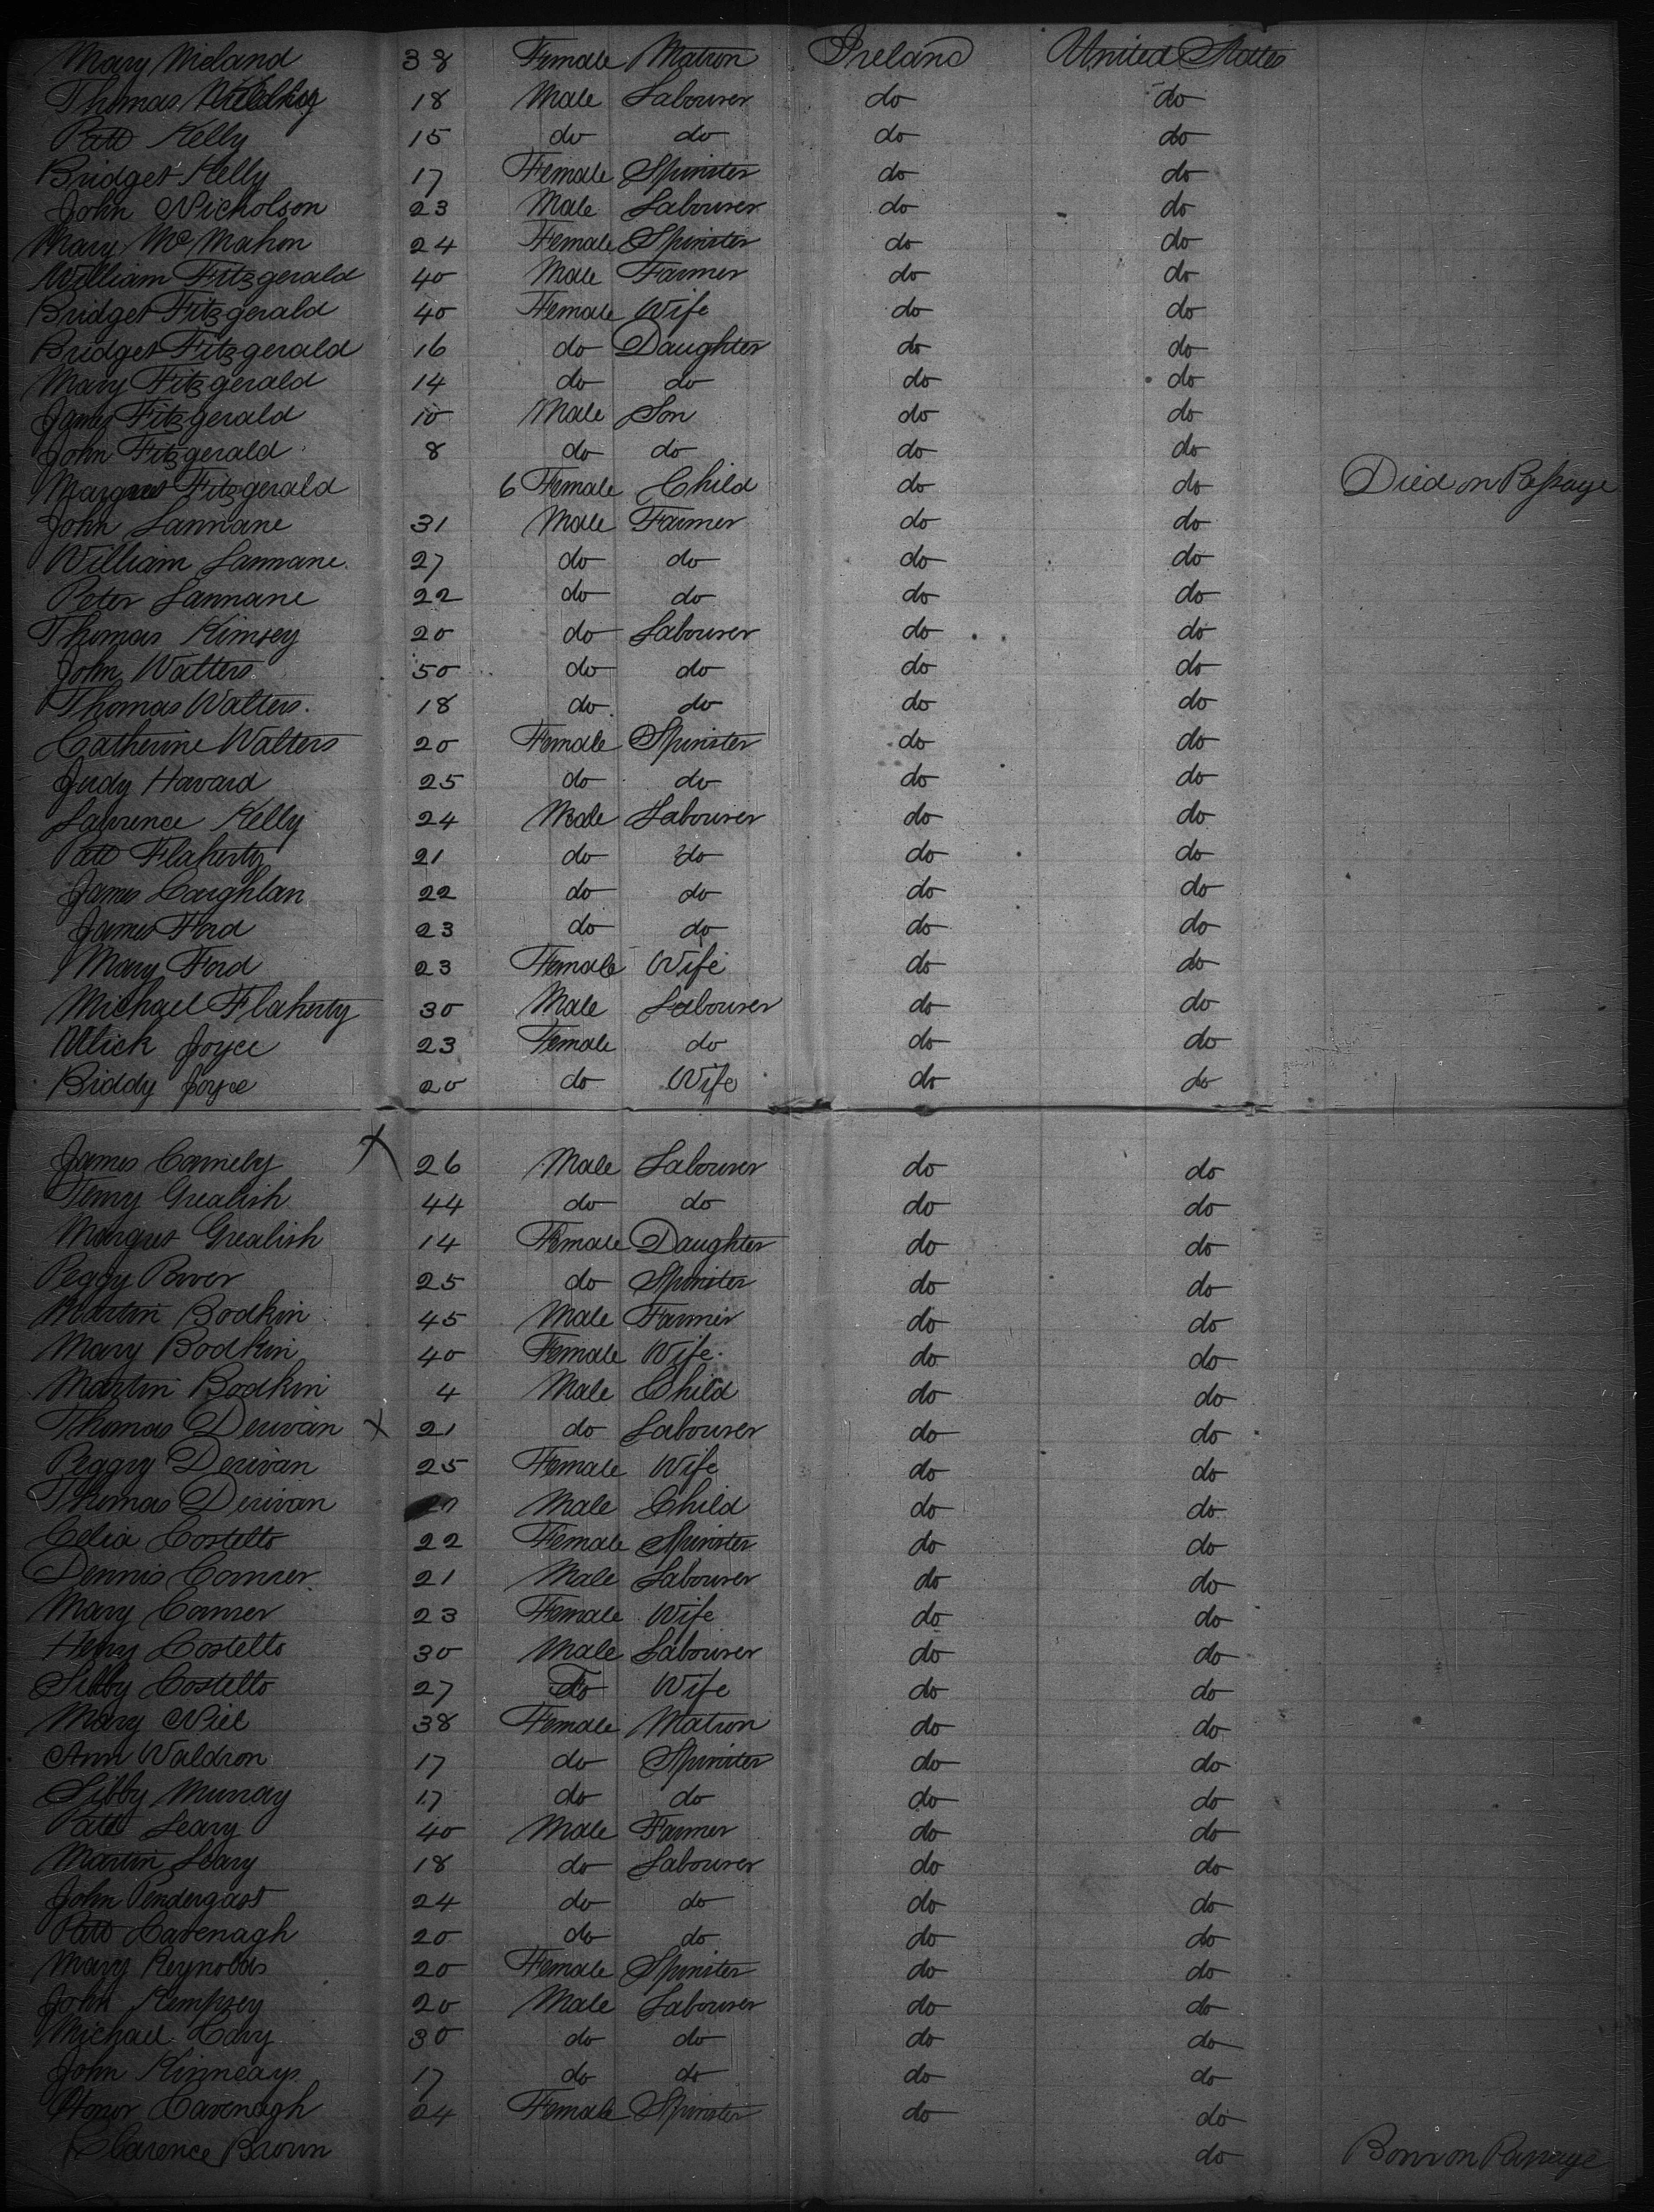 Mary Nieland 38 Female Matron Ireland United States
Thomas 18 Male Labourer do do
Patt Kelly 15 do do do do
Bridget Kelly 17 Female Spinster do do
John Nicholson 23 Male Labourer do do
Mary McMahon 24 Female Spinster do do
William Fitzgerald 40 Male Farmer do do
Bridget Fitzgerald 40 Female Wife do do
Bridget Fitzgerald 16 do Daughter do do
Mary Fitzgerald 14 do do do do
James Fitzgerald 10 Male Son do do
John Fitzgerald 8 do do do do
Margret Fitzgerald 6 Female Child do do Died on Passage
John Lannane 31 Male Farmer do do
William Lannane 27 do do do do
Peter Lannane 22 do do do do
Thomas Kimsey 20 do Labourer do do
John Walters 50 do do do do
Thomas Walters 18 do do do do
Catherine Walters 20 Female Spinster do do
Judy Havard 25 do do do do
Laurence Kelly 24 Male Labourer do do
Patt Flaherty 21 do do do do
James Coughlan 22 do do do do
James Ford 23 do do do do
Mary Ford 23 Female Wife do do
Michael Flaherty 30 Male Labourer do do
Ulick Joyce 23 Female do do do
Biddy Joyce 20 do Wife do do
James X 26 Male Labourer do do
Grealish 44 do do do do
Margret Grealish 14 Female Daughter do do
Peggy Power 25 do Spinster do do
Martin Bodkin 45 Male Farmer do do
Mary Bodkin 40 Female Wife do do
Martin Bodkin 4 Male Child do do
Thomas Derivan X 21 do Labourer do do
Peggy Derivan 25 Female Wife do do
Thomas Derivan Male Child do do
Celia Costello 22 Female Spinster do do
Dennis Comer 21 Male Labourer do do
Mary Comer 23 Female Wife do do
Henry Costello 30 Male Labourer do do
Sibby Costello 27 Do Wife do do
Mary Niel 38 Female Matron do do
Ann Waldron 17 do Spinster do do
Sibby Murray 17 do do do do
Patt Leary 40 Male Farmer do do
Martin Leary 18 do Labourer do do
John Pendergast 24 do do do do
Patt Cavenagh 20 do do do do
Mary Reynolds 20 Female Spinster do do
John Kempsey 20 Male Labourer do do
Michael 30 do do do do
John Kinneays 17 do do do do
Honor Cavenagh 24 Female Spinster do do
Clarence Brown do Born on Passage